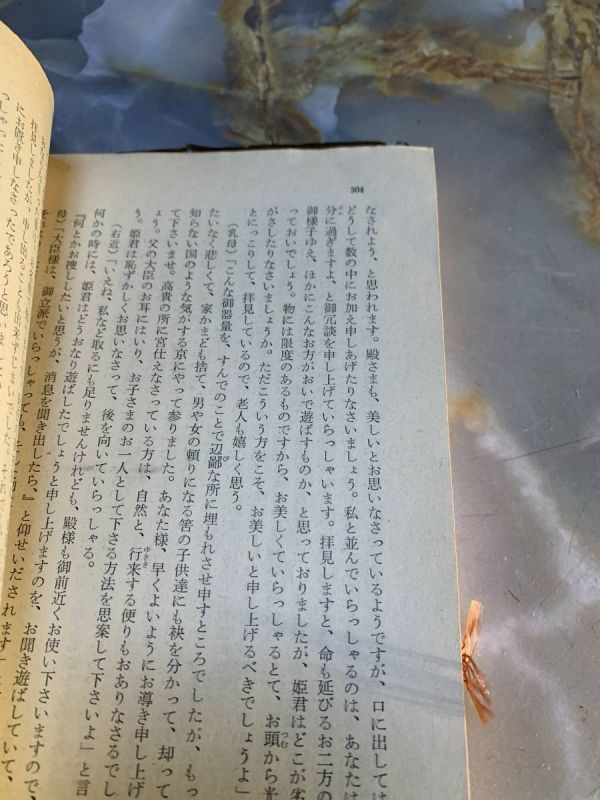 304
なされよう、と思われます。殿さまも、美しいとお思いなさっているようですが、口に出しては
どうして数の中にお加え申しあげたりなさいましょう。私と並んでいらっしゃるのは、あなたは
分に過ぎますよ、と御冗談を申し上げていらっしゃいます。拝見しますと、命も延びるお二方の
御様子ゆえ、ほかにこんなお方がおいで遊ばすものか、と思っておりましたが、姫君はどこが劣
っておいでしょう。物には限度のあるものですから、お美しくていらっしゃるとて、お頭から光
がさしたりなさいましょうか。ただこういう方をこそ、お美しいと申し上げるべきでしょうよ」
とにっこりして、拝見しているので、老人も嬉しく思う。
(乳母)「こんな御器量を、すんでのことで辺鄙な所に埋もれさせ申すところでしたが、もっ
たいなく悲しくて、家かまども捨て、男や女の頼りになる筈の子供達にも袂を分かって、却って
知らない国のような気がする京にやって参りました。あなた様、早くよいようにお導き申し上げ
て下さいませ。高貴の所に宮仕えなさっている方は、自然と、行来する便りもおありなさるでし
ょう。父の大臣のお耳にはいり、お子さまのお一人として下さる方法を思案して下さいよ」と言
う。姫君は恥ずかしくお思いなさって、後を向いていらっしゃる。
(右近)「いえね、私など取るにも足りませんけれども、殿様も御前近くお使い下さいますので、
何かの時には、姫君はどうおなり遊ばしたでしょうと申し上げますのを、お聞き遊ばしていて、
『何とかお捜ししたいと思うが、消息を聞き出したら、』と仰せいだされます」と
母)「大臣様は、御立派でいらっしゃっても、